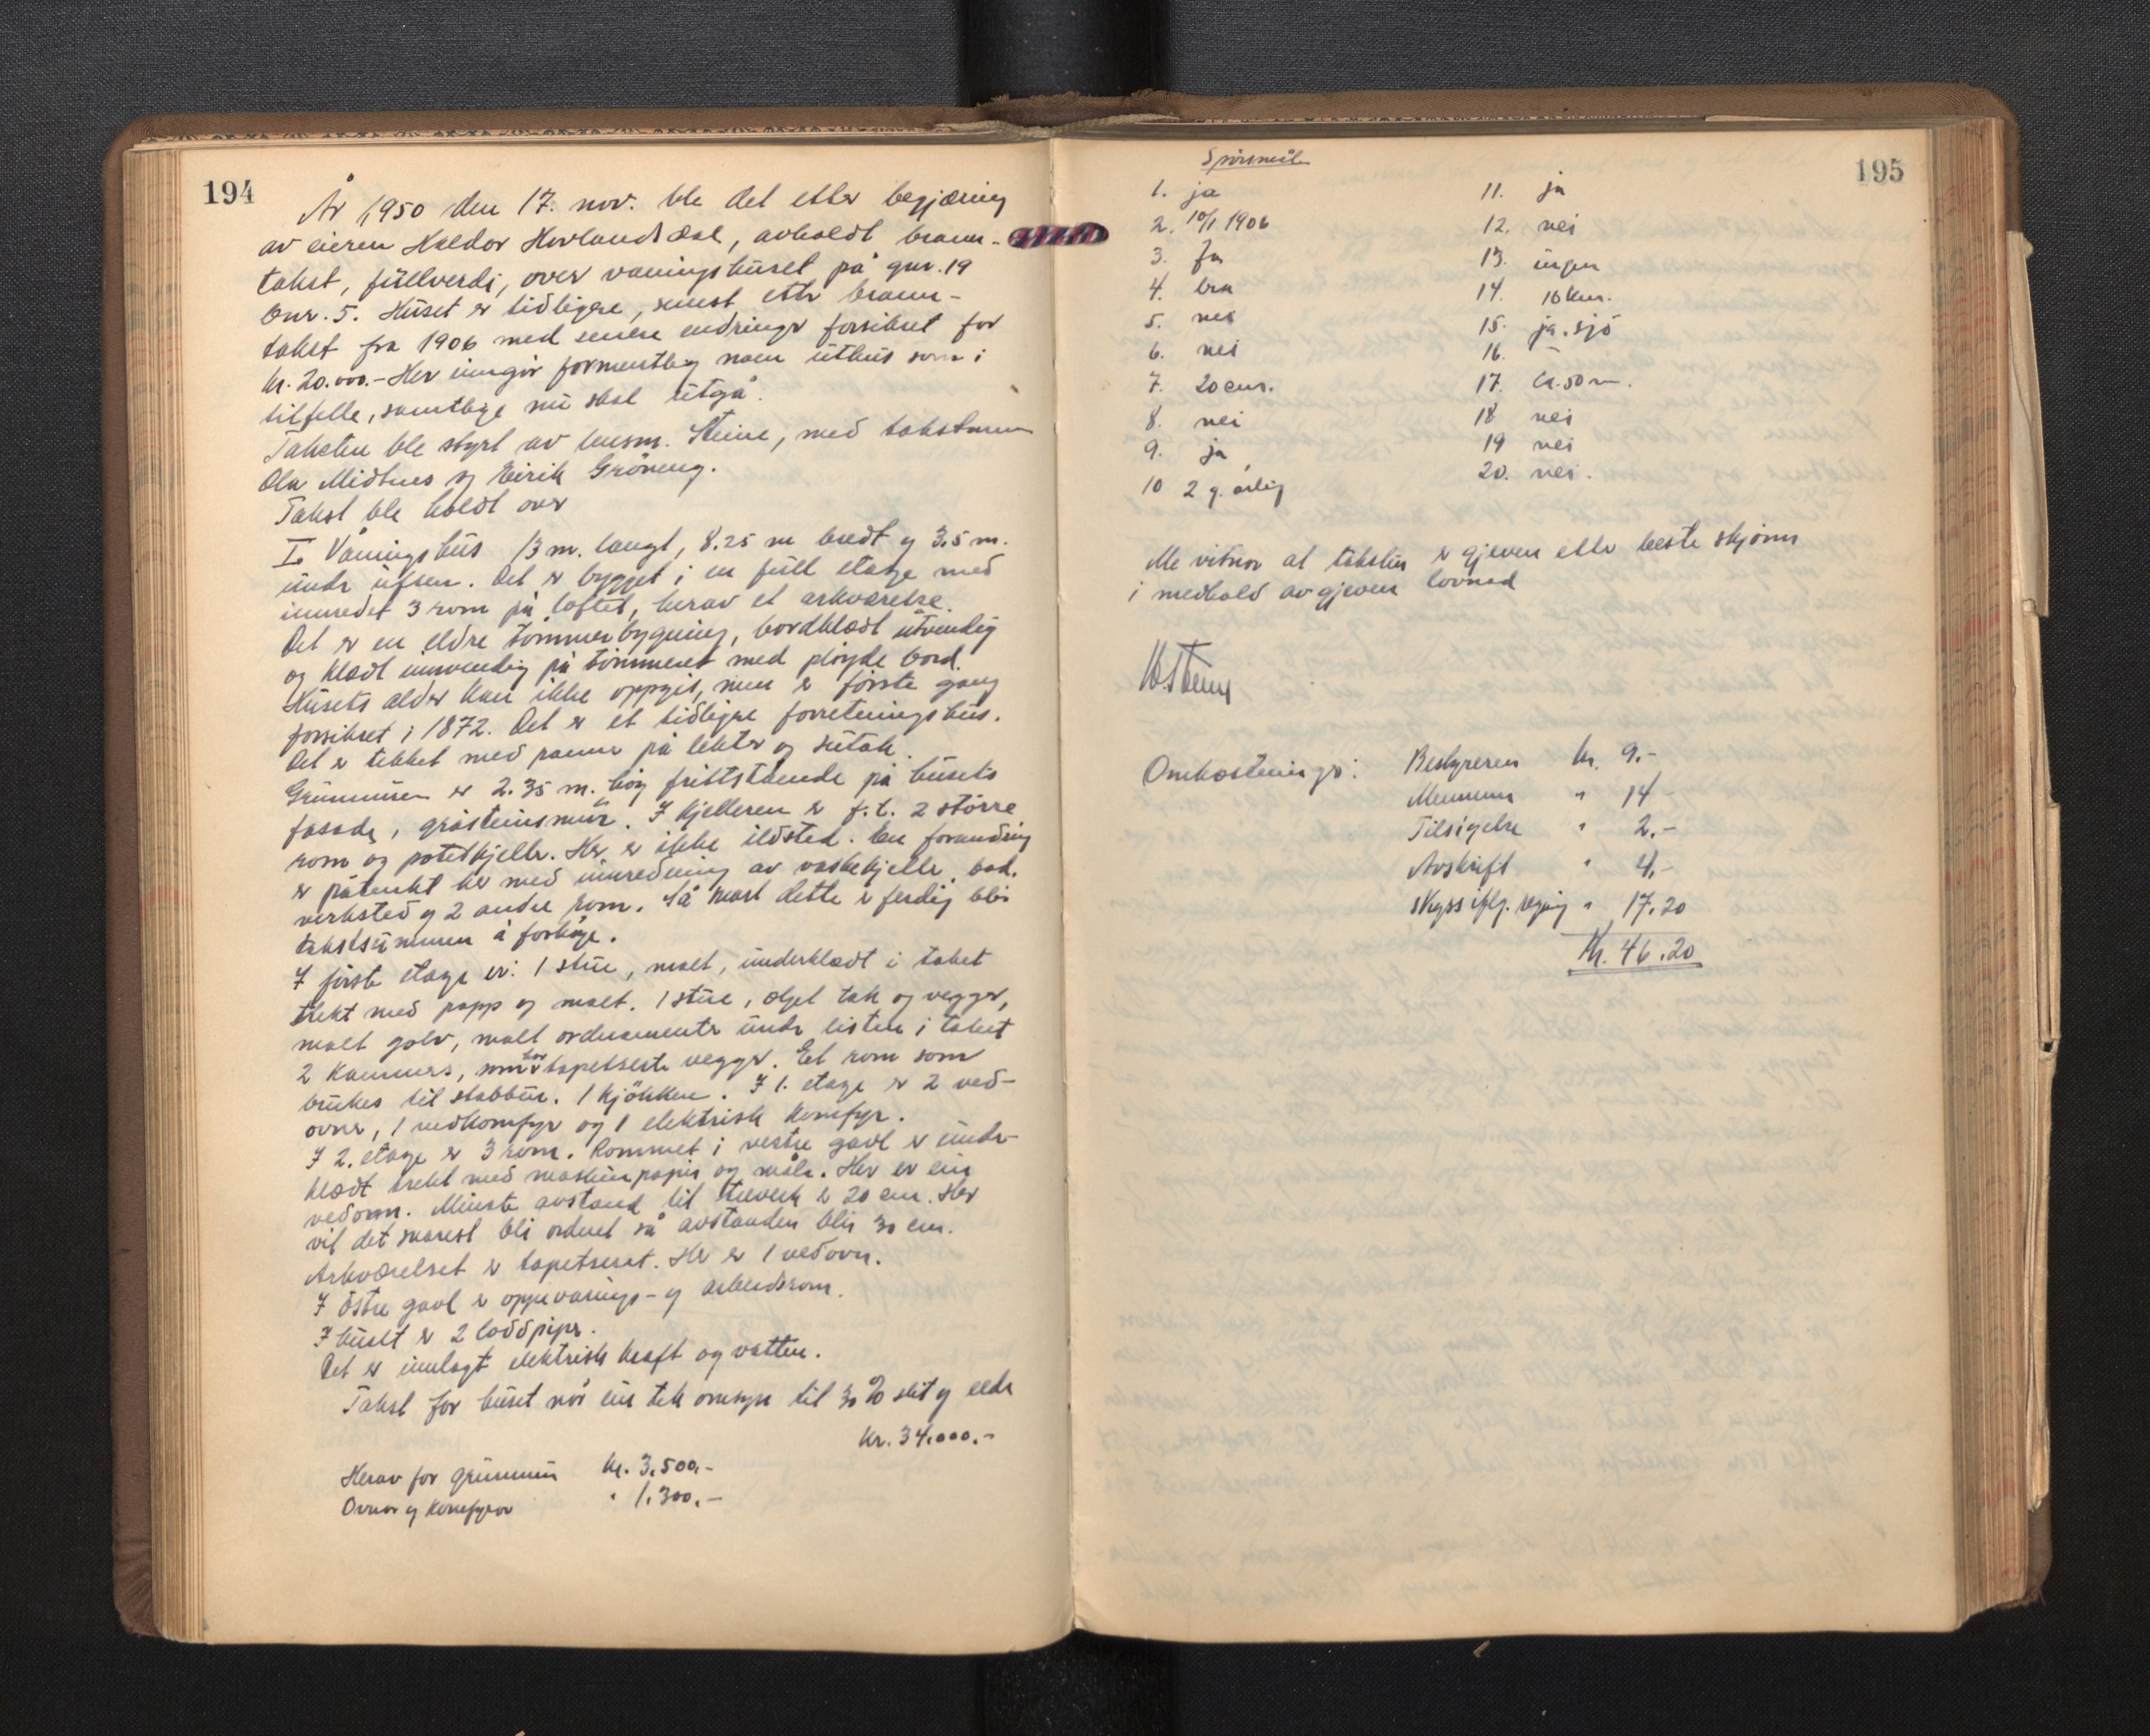 194
År 1950 den 17. nov. ble det etter begjæring
av eieren Haldor Hovlandsdal, avholdt brann-
takst, fullverdi, over våningshuset på gnr. 19
bnr. 5. Huset er tidligere, senest etter brann-
takst fra 1906 med senere endringer forsikret for
kr. 20.000.- Her inngår formentleg noen uthus som i
tilfelle, samtlige nu skal utgå.
Taksten ble styrt av lensm. Steine, med takstmenn
Ola Midtnes og Eirik Gröneng.
Takst ble holdt over
I. Våningshus 13 m. langt, 8.25 m bredt og 3,5 m.
under ufsen. Det er bygget i en full etage med
innredet 3 rom på loftet, herav et arkværelse.
Det er en eldre tömmerbygning, bordklædt utvendig
og klædt innvendig på tömmeret med pløyde bord.
Husets alder kan ikke oppgis, men er første gang
forsikret i 1872. Det er et tidligere forretningshus.
Det er tekket med panner på lekter og sutak.
Grunnmuren er 2.35 m. høg frittstående på husets
fasade, gråsteinsmur. I kjelleren er f.t. 2 større
rom og potetkjeller. Her er ikke ildsted. En forandring
er påtenkt her med innredning av vaskekjeller, bad,
verksted og 2 andre rom. Så snart dette er ferdig blir
takstsummen å forhøye.
I første etage er: 1 stue, malt, underklædt i taket
trekt med papp og malt. 1 stue, oljet tak og vegger,
malt golv, malt ordnamenter under listen i taket
2 kammers, har tapetserte vegger. Et rom som
brukes til stabbur. 1 kjökken. I 1. etage er 2 ved-
ovner, 1 vedkomfyr og 1 elektrisk komfyr.
I 2. etage er 3 rom. Rommet i vestre gavl er under-
klædt trekt med maskinpapir og måla. Her er ein
vedomn. Minste avstand til treverk er 20 cm. Her
vil det snarest bli ordnet så avstanden blir 30 cm.
Arkværelset er tapetseret. Her er 1 vedovn.
I östre gavl er oppevarings- og arbeidsrom.
I huset er 2 loddpiper.
Det er innlagt elektrisk kraft og vatten.
Takst for huset når ein tek omsyn til 30 % slit og elde
kr. 34.000.-
Herav for grunnmur kr. 3.500,-
Ovner og komfyrer " 1.300,-
195
Spörsmål
1. ja
2. 10/1 1906
3. Ja
4. bra
5. nei
6. nei
7. 20 cm.
8. nei
9. ja
10 2 g. årlig
11. ja
12. nei
13. ingen
14. 10 km.
15. ja. sjö
16. -
17. ca. 50 m.
18 nei
19 nei
20. nei.
Me vitnar at taksten er gjeven etter beste skjønn
i medhald av gjeven lovnad
Steine
Omkostninger: Bestyreren kr. 9.-
Mennene " 14
Tilsigelse " 2.-
Avskrift " 4.-
Skyss iflg. regning " 17.20
Kr. 46.20